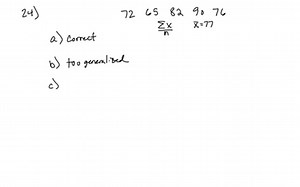 24) 72 65 82 90 76
Σx/n x̄=77
a) correct
b) too generalized
c)